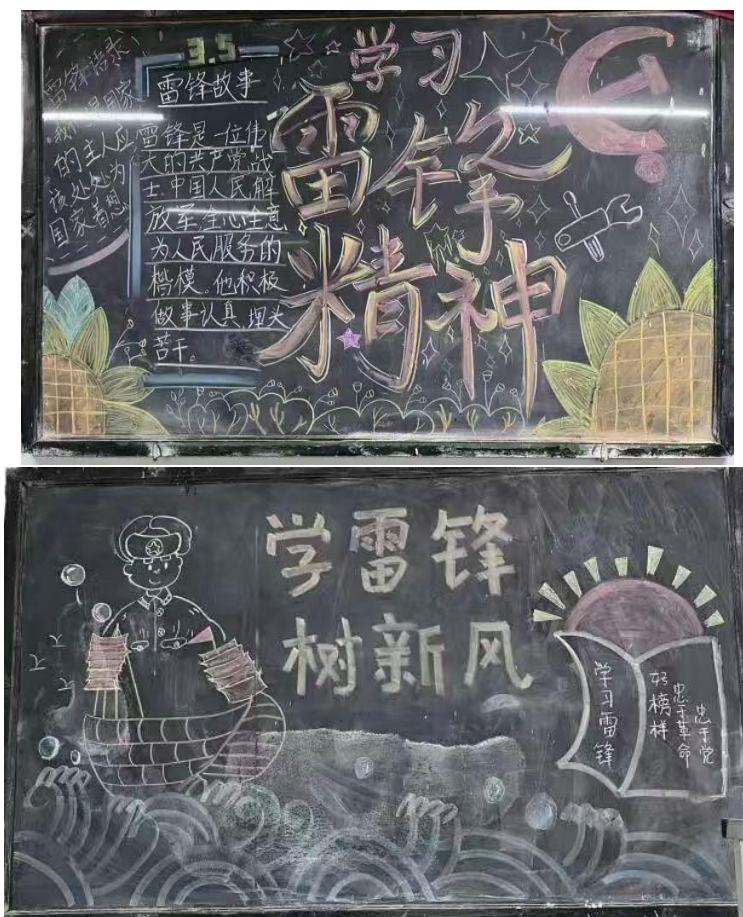 雷锋语录
我们是国家
的主人应
该处处为
国家着想
3.5
雷锋故事
雷锋是一位伟
大的共产党战
士中国人民解
放军全心全意
为人民服务的
楷模。他积极
做事认真,埋头
苦干。
学习
雷锋
精神
学雷锋
树新风
学习雷锋
好榜样
忠于革命
忠于党